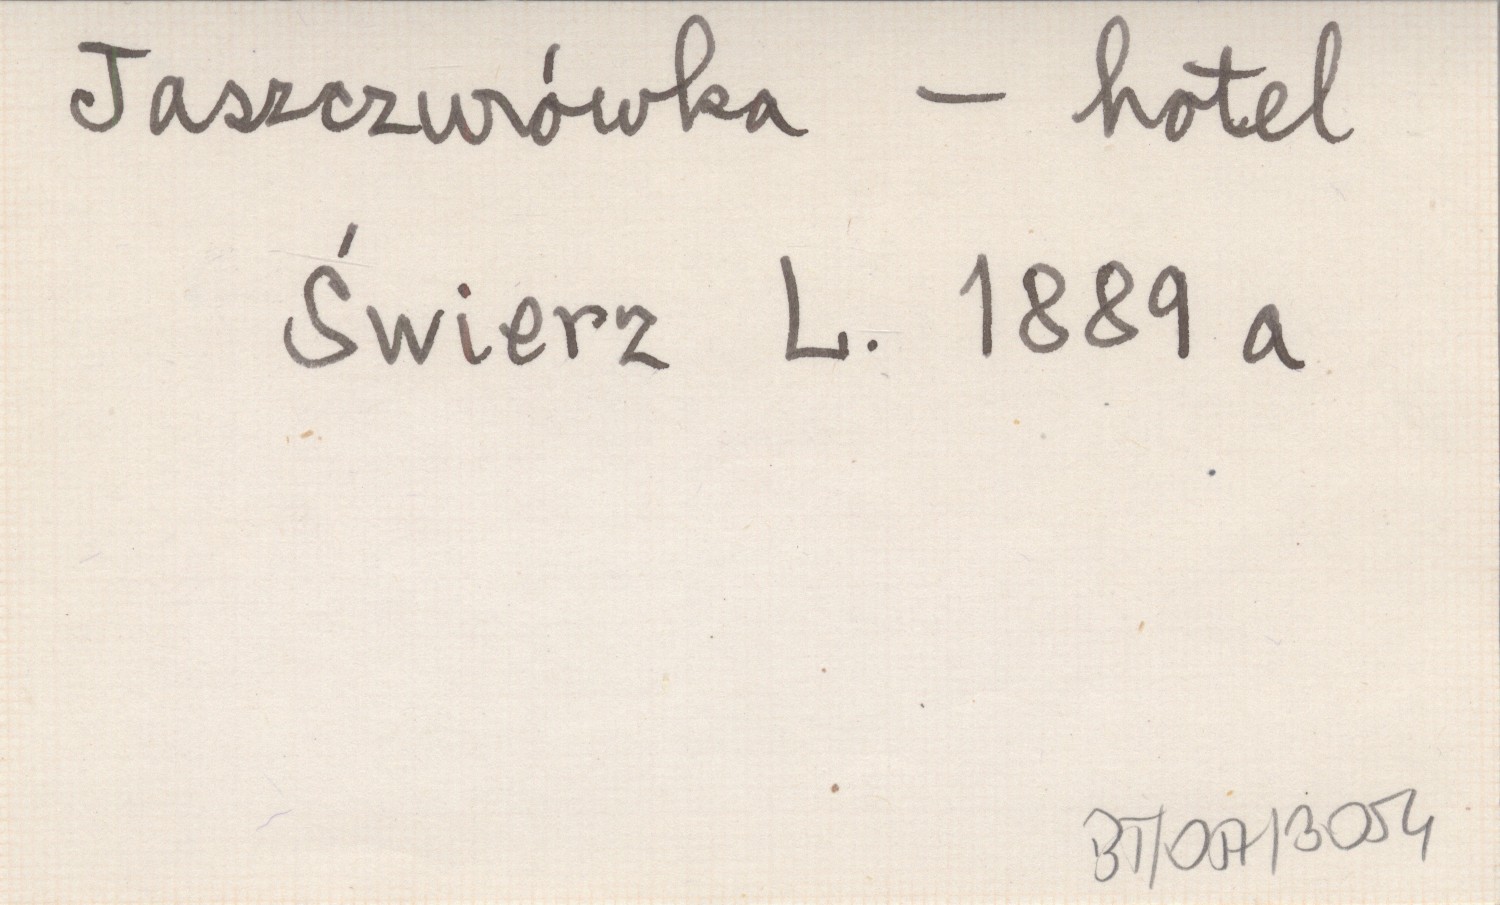 Jaszczurówka – hotel
Świerz L. 1889 a
BT/OA/3054